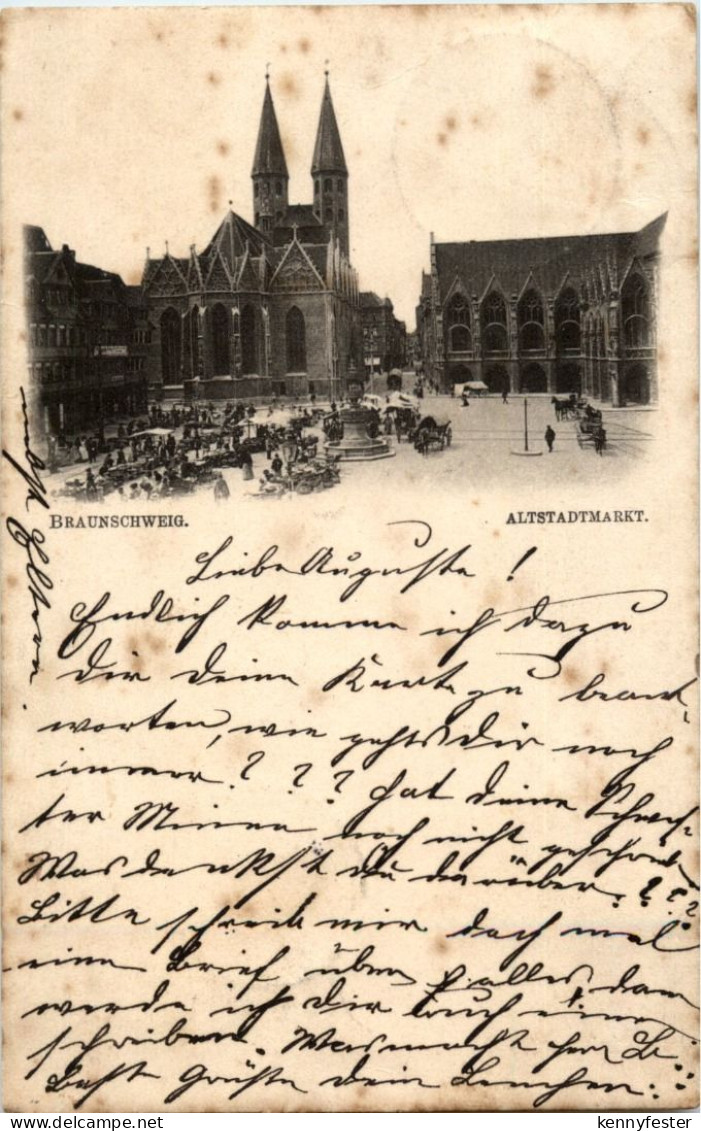 BRAUNSCHWEIG.
ALTSTADTMARKT.
Liebe Auguste!
Endlich komme ich dazu
Dir deine Karte zu beant-
worten, wie gehts Dir noch
immer? ? ? hat deine Schwes-
ter Minna noch nicht geschrieb
Was denkst du darüber. ? ? ?
Bitte schreib mir doch mal
einen Brief über alles, dann
werde ich Dir auch einen
schreiben. Was macht herr B.
Beste Grüße dein Lenchen.
Eltern.
kennyfester